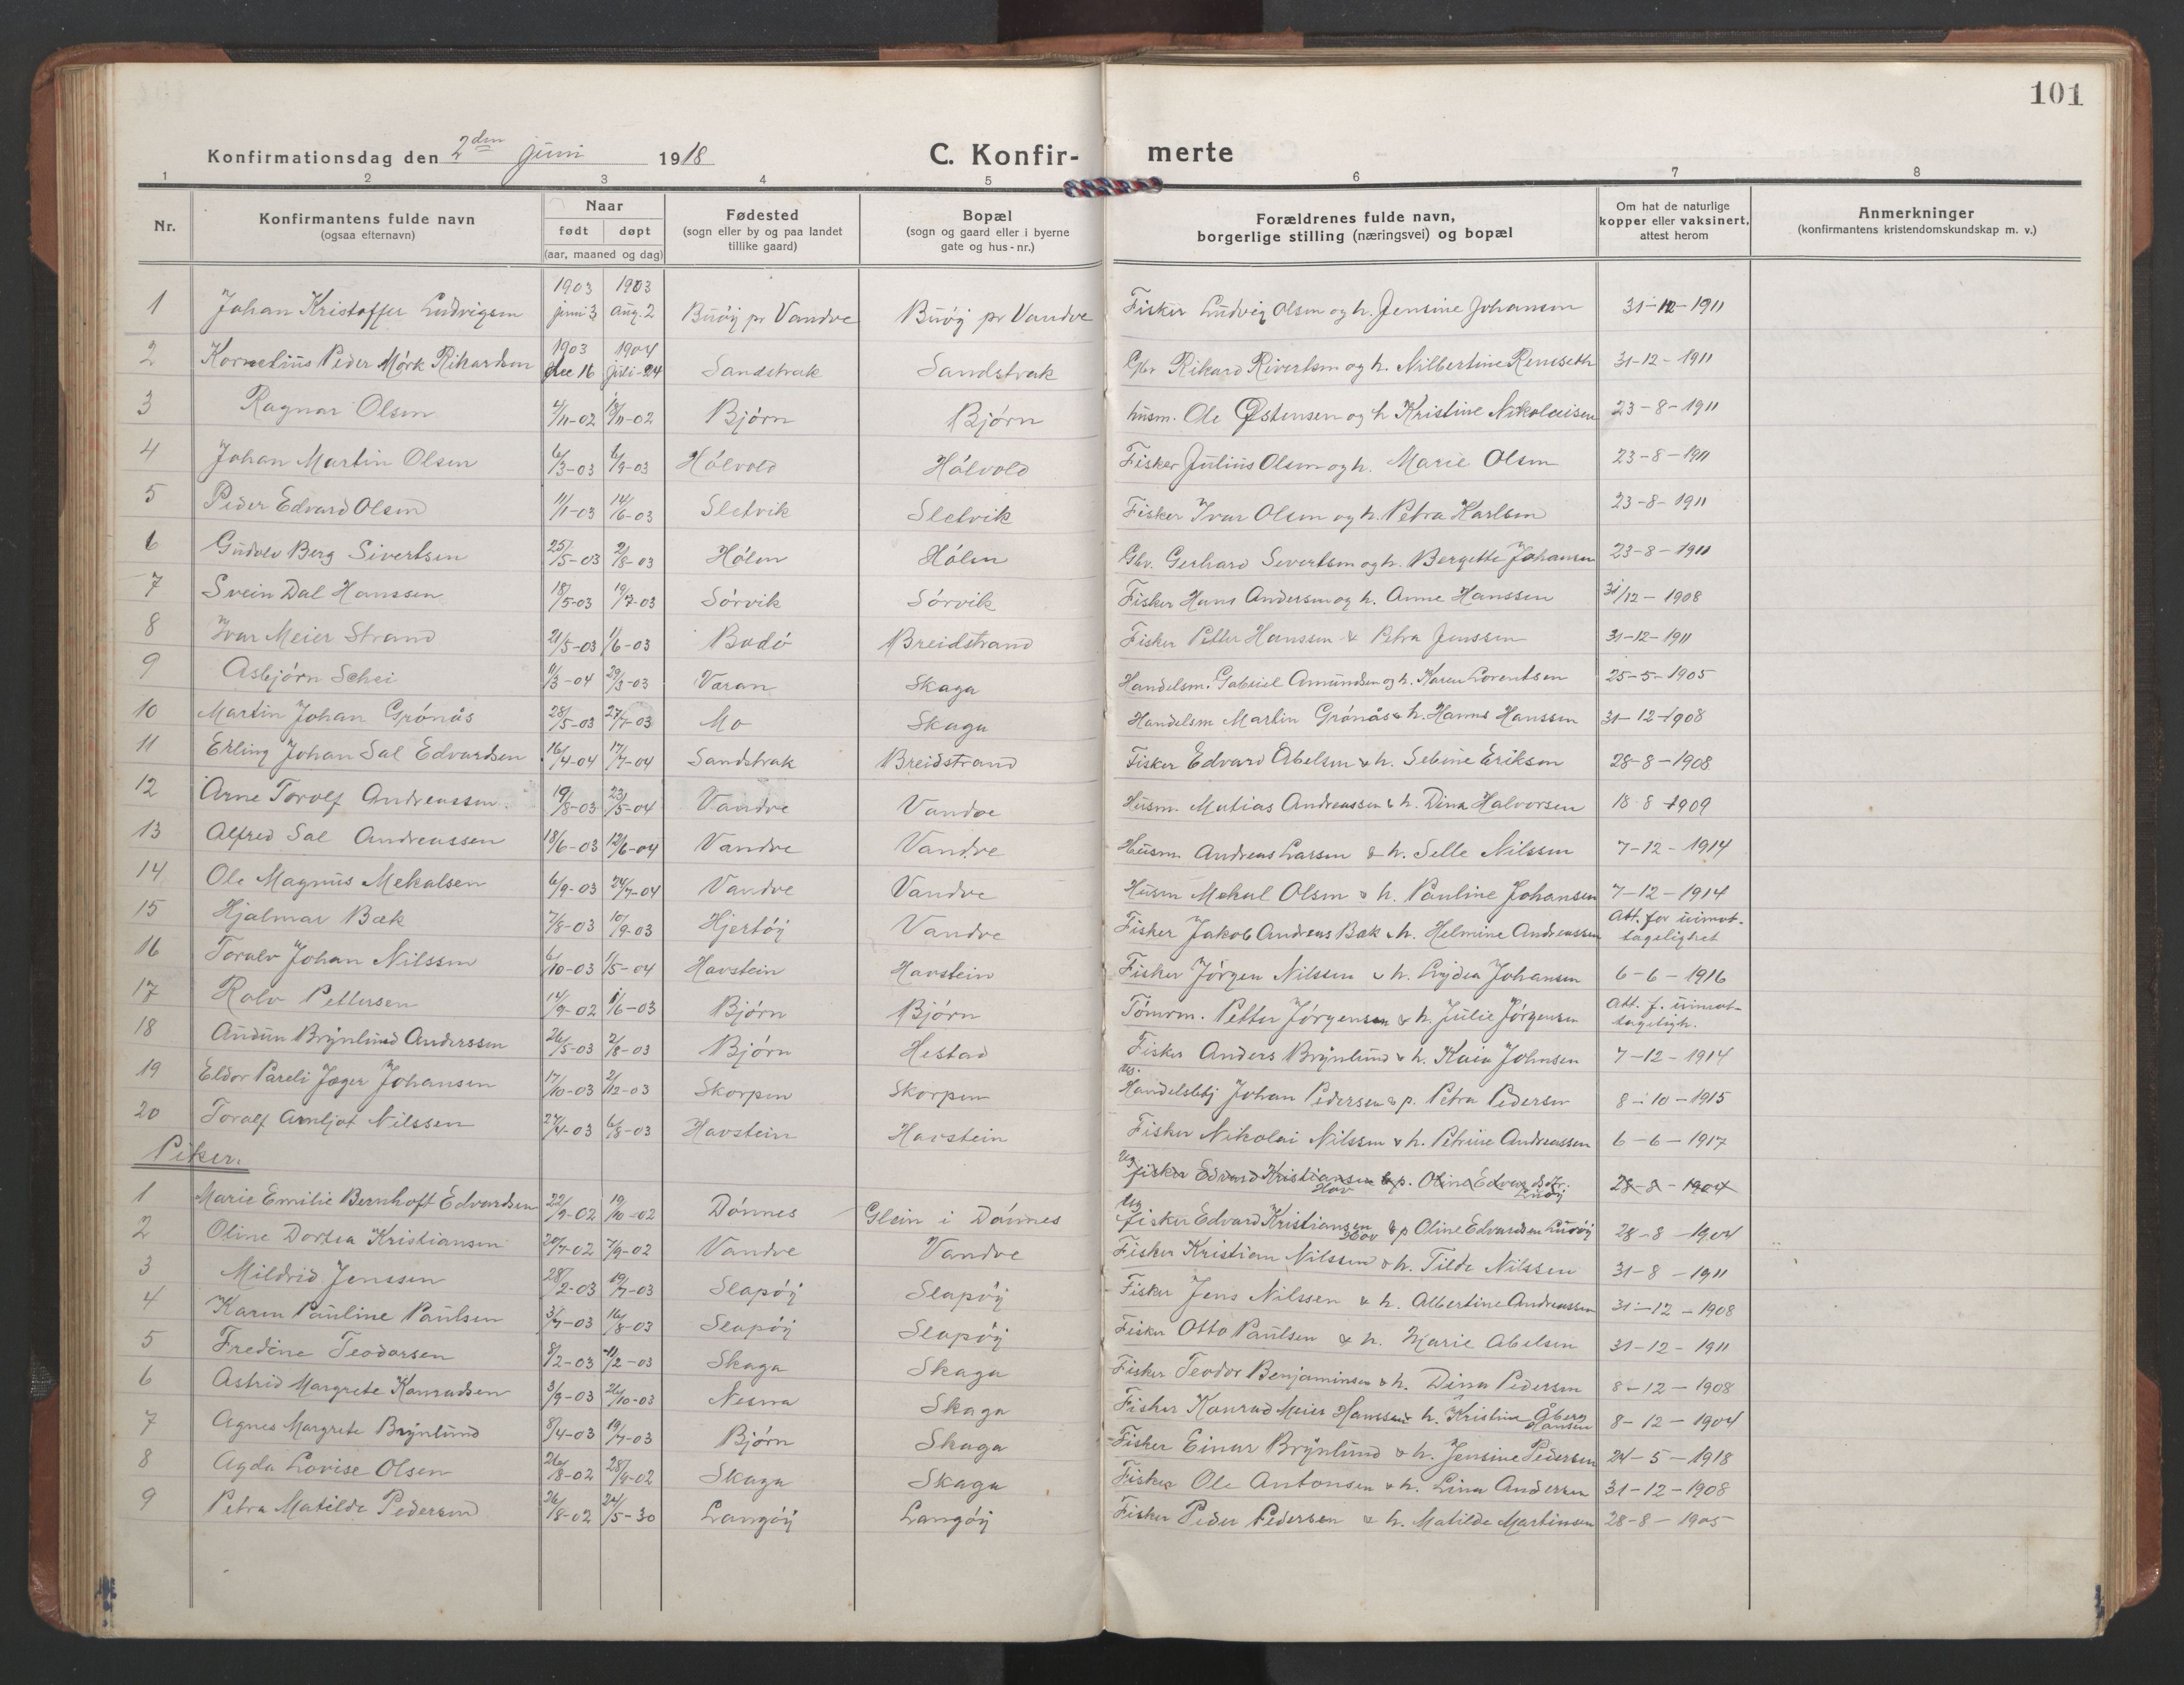 101
Konfirmationsdag den 2den juni 1918
C. Konfirmerte
1 2 3 4 5 6 7 8
Nr. | Konfirmantens fulde navn (ogsaa efternavn) | Naar født døpt (aar, maaned og dag) | Fødested (sogn eller by og paa landet tillike gaard) | Bopæl (sogn og gaard eller i byerne gate og hus-nr.) | Forældrenes fulde navn, borgerlige stilling (næringsvei) og bopæl | Om hat de naturlige kopper eller vaksinert, attest herom | Anmerkninger (konfirmantens kristendomskundskap m. v.)
1 Johan Kristoffer Ludvigsen 1903 juni 3 1903 aug. 2 Buøy pr Vandve Buøy pr Vandve Fisker Ludvig Olsen og h. Jensine Johansen 31-12-1911
2 Kornelius Peder Mørk Rikardsen 1903 dec 16 1904 juli-24 Sandstrak Sandstrak Gbr Rikard Rivertsen og h. Nilbertine Remseth 31-12-1911
3 Ragnar Olsen 4/11-02 18/11-02 Bjørn Bjørn husm. Ole Østensen og h Kristine Nikolaisen 23-8-1911
4 Johan Martin Olsen 6/3-03 6/9-03 Hólvold Hólvold Fisker Julius Olsen og h. Marie Olsen 23-8-1911
5 Peder Edvard Olsen 11/1-03 14/6-03 Sletvik Sletvik Fisker Ivar Olsen og h. Petra Karlsen 23-8-1911
6 Gudolv Berg Sivertsen 25/5-03 2/8-03 Hólen Hólen Gbr. Gerhard Severtsen og h. Bergette Johansen 23-8-1911
7 Svein Dal Hanssen 18/5-03 19/7-03 Sørvik Sørvik Fisker Hans Andersen og h. Anne Hanssen 31/12-1908
8 Ivar Meier Strand 21/5-03 1/6-03 Bodó Breidstrand Fisker Petter Hanssen & Petra Jenssen 31-12-1911
9 Asbjørn Schei 11/3-04 29/3-03 Varan Skaga Handelsm. Gabriel Amundsen og h. Karen Lorentsen 25-5-1905
10 Martin Johan Grónås 28/5-03 27/7-03 Mo Skaga Handelsm Martin Grónås & h. Hanna Hanssen 31-12-1908
11 Erling Johan Sal Edvardsen 16/4-04 17/7-04 Sandstrak Breidstrand Fisker Edvard Abelsen & h. Sebine Eriksen 28-8-1908
12 Arne Torolf Andreassen. 19/8-03 23/5-04 Vandve Vandve Husm. Matias Andreassen & h. Dina Halvorsen 18-8-1909
13 Alfred Sal Andreassen 18/6-03 12/6-04 Vandve Vandve Husm. Andreas Larsen & h. Selle Nilssen 7-12-1914
14 Ole Magnus Mekalsen 6/9-03 24/7-04 Vandve Vandve Husm Mekal Olsen & h. Pauline Johansen 7-12-1914
15 Hjalmar Bæk 7/8-03 10/9-03 Hjertóy Vandve Fisker Jakob Andreas Bæk & h. Helmine Andreassen Att. for uimottagelighet
16 Toralv Johan Nilssen 6/10-03 1/5-04 Havstein Havstein Fisker Jórgen Nilssen & h. Lydea Johansen 6-6-1916
17 Rolv Pettersen 14/9-02 1/6-03 Bjórn Bjórn Tómrm. Petter Jórgensen & h. Julie Jórgensen Att. f. uimottageligh.
18 Audun Brynlund Anderssen 26/5-03 2/8-03 Bjórn Hestad Fisker Anders Brynlund & h. Kaia Johnsen 7-12-1914
19 Eldor Pareli Jæger Johansen 17/10-03 2/12-03 Skorpen Skorpen Ug. Handelsbetj Johan Pedersen & p. Petra Pedersen 8-10-1915
20 Toralf Arnljot Nilssen 27/4-03 6/8-03 Havstein Havstein Fisker Nikolai Nilssen & h. Petrine Andreassen 6-6-1917
Piker.
Ug fisker Edvard Kristiansen Hov & p. Oline Edvardsdtr. Luróy 28-8-1904
1 Marie Emilie Bernhoft Edvardsen 22/9-02 19/10-02 Dónnes Glein i Dónnes Ug fisker Edvard Kristiansen Hov & p Oline Edvardsen Luróy 28-8-1904
2 Oline Dortea Kristiansen 20/7-02 7/9-02 Vandve Vandve Fisker Kristian Nilssen & h. Tilde Nilssen 31-8-1911
3 Mildrid Jenssen 28/2-03 19/7-03 Slapóy Slapóy Fisker Jens Nilssen & h. Albertine Andreassen 31-12-1908
4 Karen Pauline Paulsen 3/7-03 16/8-03 Slapóy Slapóy Fisker Otto Paulsen & h. Marie Abelsen 31-12-1911
5 Fredine Teodorsen 8/2-03 11/2-03 Skaga Skaga Fisker Teodor Benjaminsen & h. Dina Pedersen 8-12-1908
6 Astrid Margrete Konradsen 3/9-03 26/10-03 Nesna Skaga Fisker Konrad Meier Hanssen h. Kristine Åberg Hansen 8-12-1904
7 Agnes Margrete Brynlund 8/4-03 19/7-03 Bjórn Skaga Fisker Einar Brynlund & h. Jensine Pedersen 24-5-1918
8 Agda Lovise Olsen 26/8-02 28/9-02 Skaga Skaga Fisker Ole Antonsen & h. Lina Andersen 31-12-1908
9 Petra Matilde Pedersen 26/8-02 24/5-30 Langóy Langóy Fisker Peder Pedersen & h. Matilde Martinsen 28-8-1905